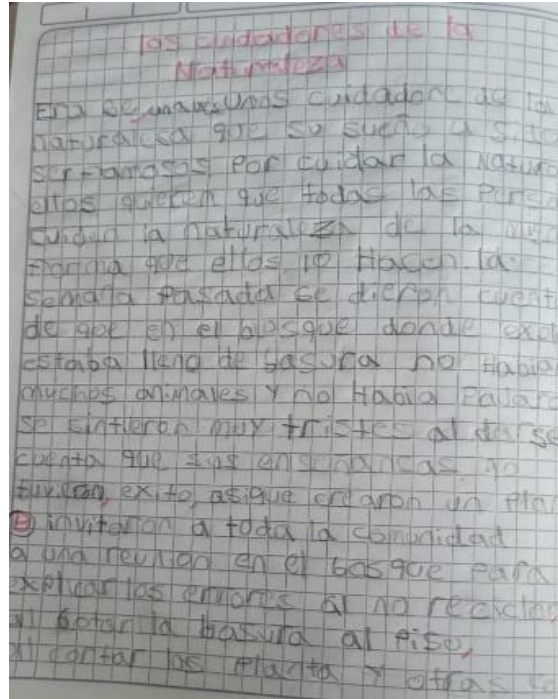 los cuidadores de la
Naturaleza
Era se unos cuidador de la
naturalesa que su sueño a
ser famosos Por cuidar la Natura
ellos quieren que todas las Perso
cuiden la naturaleza de la
Forma que ellos lo Hacen. la
semana Pasada se dieron cuent
de que en el bosque donde exp
estaba lleno de basura no Habia
muchos animales Y no Habia
se sintieron muy tristes al darse
cuenta que sus enseñancas no
tuvieron, exito, asique crearon un Pla
invitaron a toda la comunidad
a una reunion en el bosque Para
explicar los errores al no recicla,
al botar la basura al Piso,
al cortar las Planta Y otras